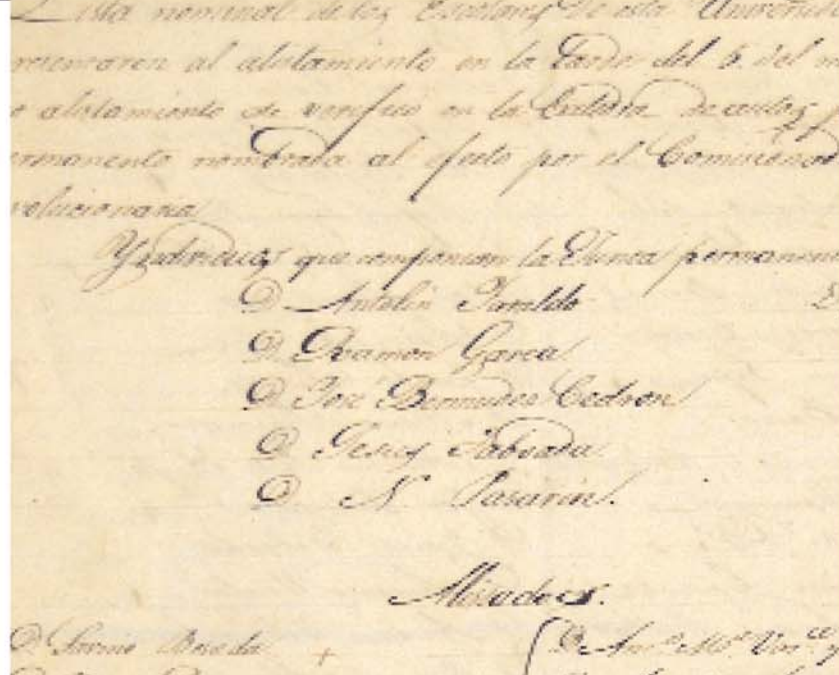 Lista nominal de los Escolares de esta Universid
presentaron al alistamiento en la tarde del 6 del
alistamiento se verificó en la Catedra de
ermanente nombrada al efecto por el Comisionad
volucionaria
Yndividuos que componian la Junta permanent
D. Antolin Faraldo
D. Ramon Garcia
D. José Bermudez Cedron
D. Jesus Taboada
D. N. Pasarin.
Alistados.
D.
D. Anº Mº